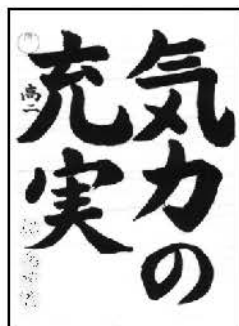 気力の
充実
高二